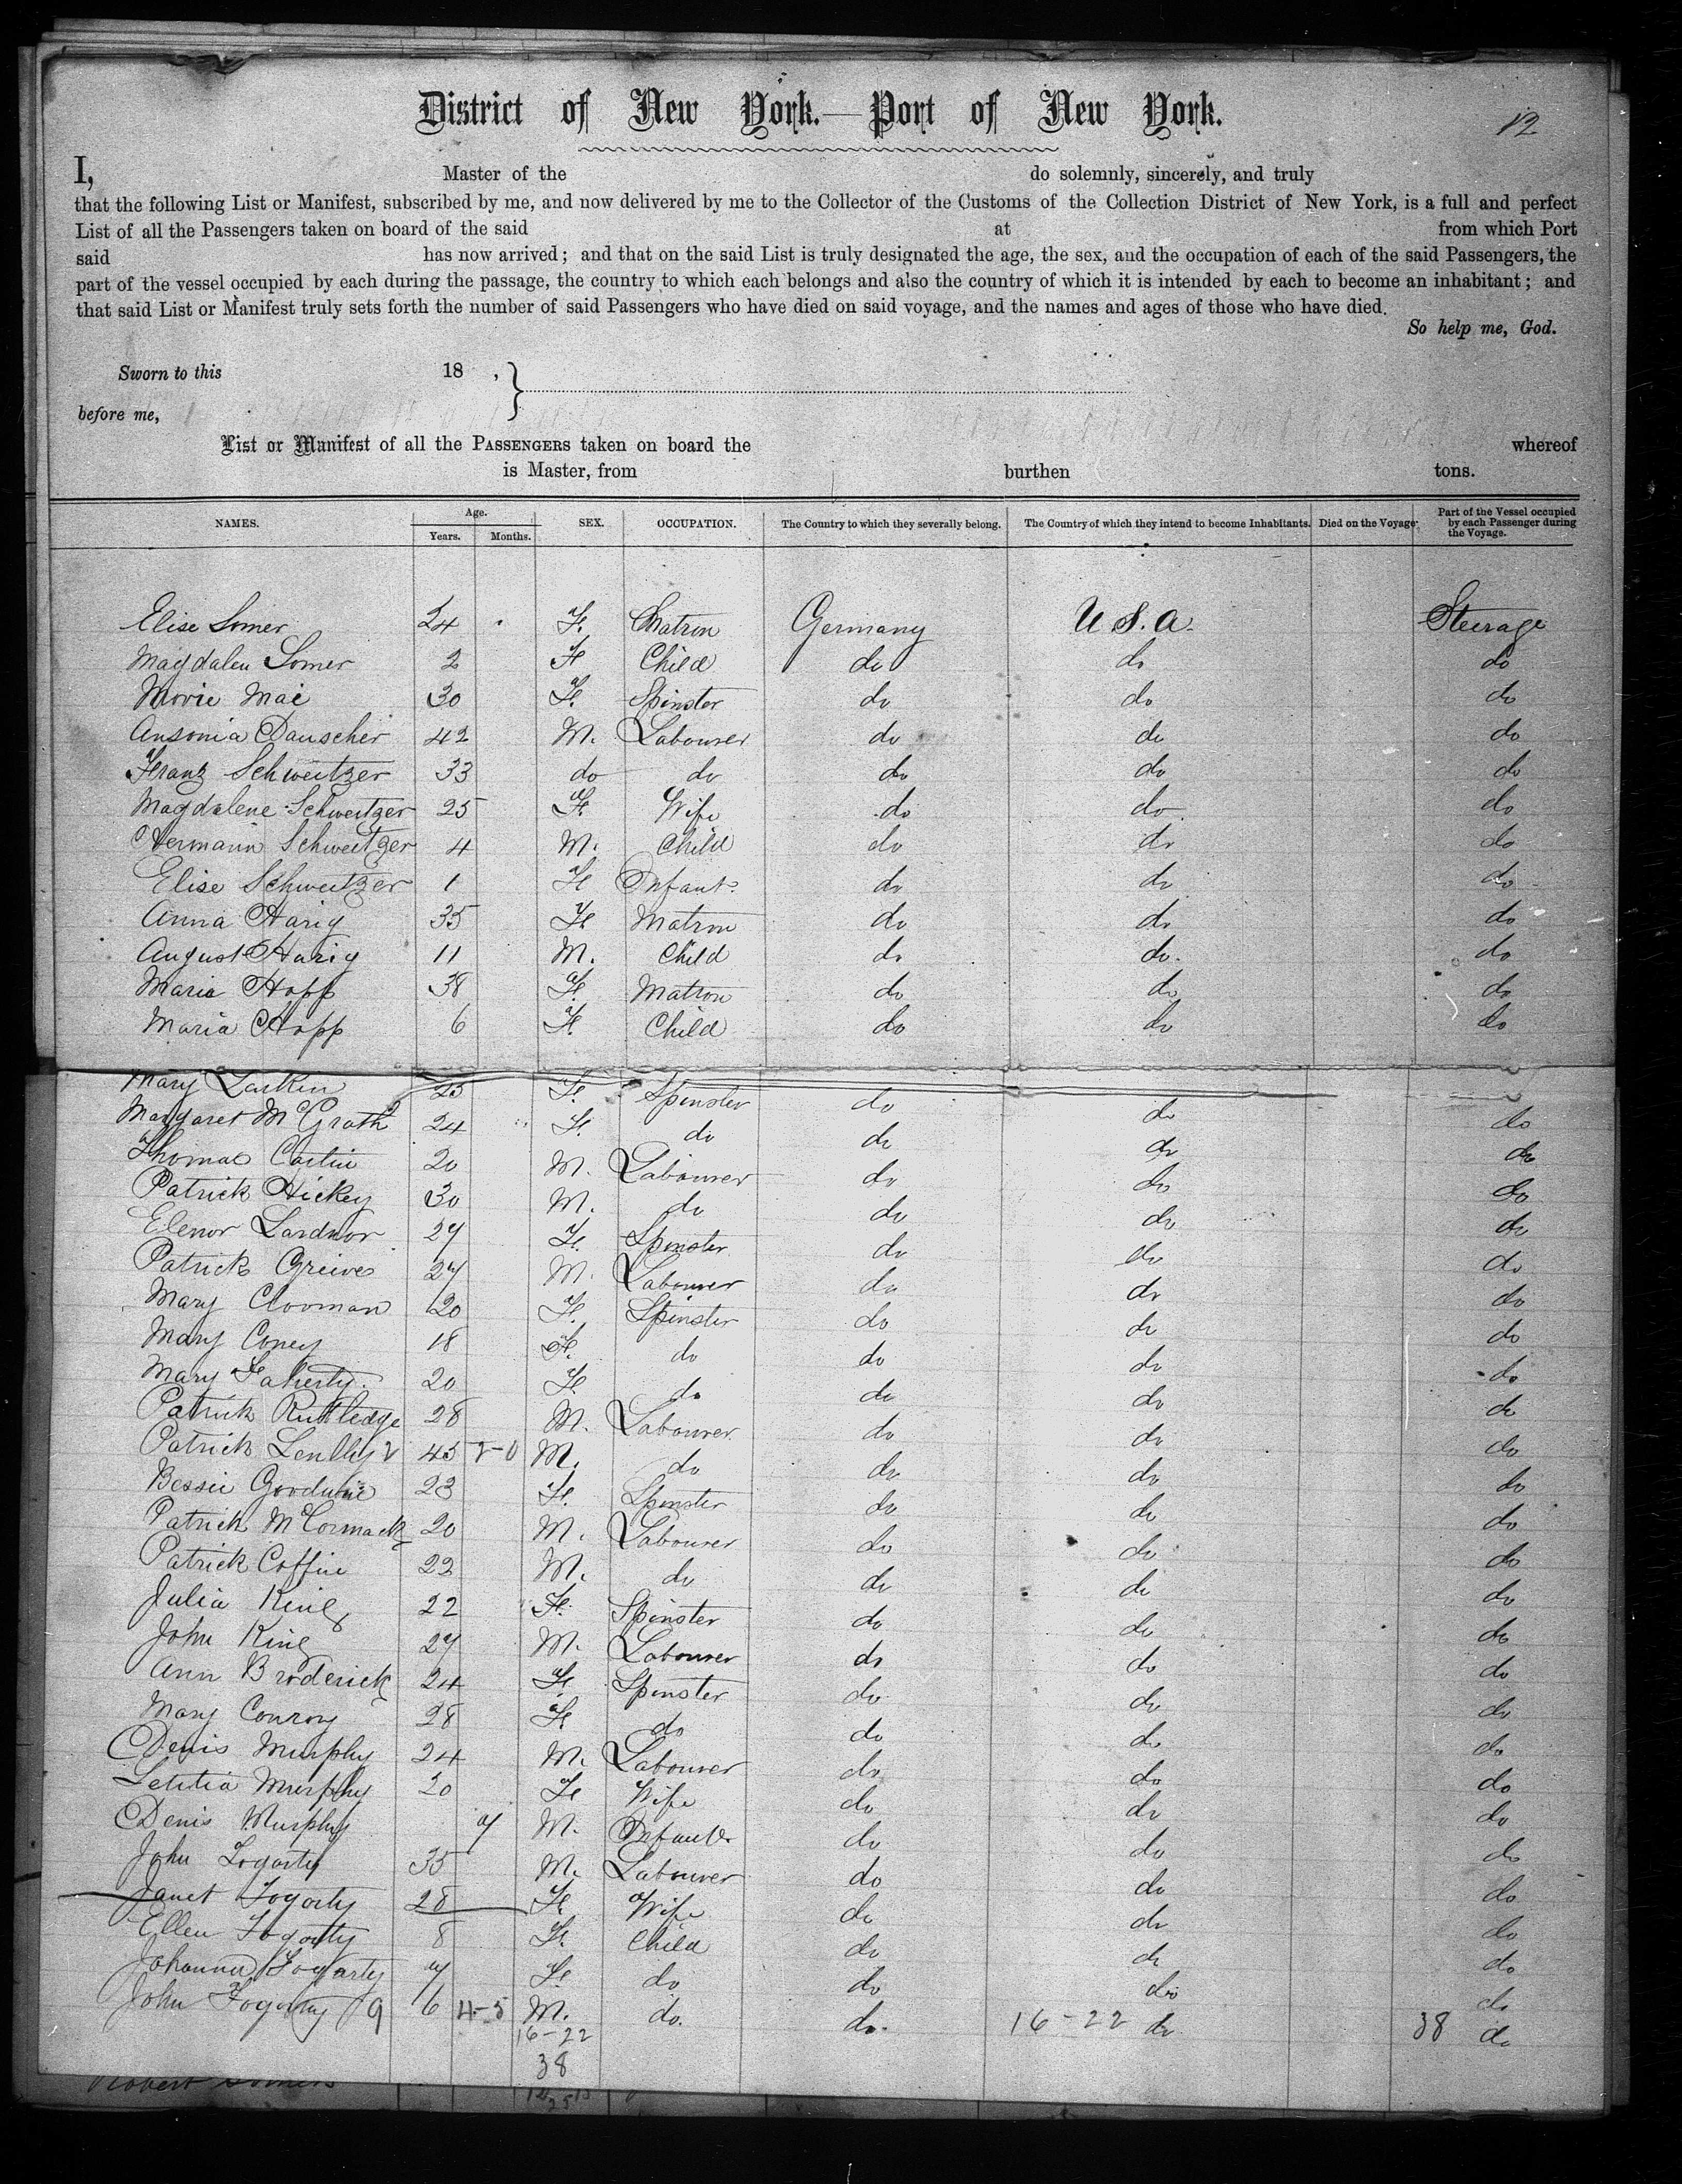 District of New York.—Port of New York.
12
I, Master of the do solemnly, sincerely, and truly
that the following List or Manifest, subscribed by me, and now delivered by me to the Collector of the Customs of the Collection District of New York, is a full and perfect
List of all the Passengers taken on board of the said at from which Port
said has now arrived; and that on the said List is truly designated the age, the sex, and the occupation of each of the said Passengers, the
part of the vessel occupied by each during the passage, the country to which each belongs and also the country of which it is intended by each to become an inhabitant; and
that said List or Manifest truly sets forth the number of said Passengers who have died on said voyage, and the names and ages of those who have died.
So help me, God.
Sworn to this 18 , }
before me,
List or Manifest of all the PASSENGERS taken on board the whereof
is Master, from burthen tons.
NAMES. Age. Years. Months. SEX. OCCUPATION. The Country to which they severally belong. The Country of which they intend to become Inhabitants. Died on the Voyage. Part of the Vessel occupied by each Passenger during the Voyage.
Elise Somer 24 F. Matron Germany U.S.A. Steerage
Magdalen Somer 2 F Child do do do
Morie Mai 30 F. Spinster do do do
Ansonia Dauscher 42 M. Labourer do do do
Franz Schweitzer 33 do do do do do
Magdalene Schweitzer 25 F. Wife do do do
Hermann Schweitzer 4 M. Child do do do
Elise Schweitzer 1 F Infant do do do
Anna Harig 35 F. Matron do do do
August Harig 11 M. Child do do. do
Maria Hopp 38 F. Matron do do do
Maria Hopp 6 F. Child do do do
Mary Larkin 25 F. Spinster do do do
Margaret McGrath 24 F. do do do do
Thomas 20 M. Labourer do do do
Patrick Hickey 30 M. do do do do
Elenor Lardnor 27 F. Spinster do do do
Patrick Greives 27 M. Labourer do do do
Mary Clooman 20 F. Spinster do do do
Mary Coney 18 F. do do do do
Mary Faherty 20 F. do do do do
Patrick Ruttledge 28 M. Labourer do do do
Patrick 45 M. do do do do
Bessie Goodwine 23 F. Spinster do do do
Patrick McCormack 20 M. Labourer do do do
Patrick Coffin 22 M. do do do do
Julia King 22 F. Spinster do do do
John King 27 M. Labourer do do do
Ann Broderick 24 F. Spinster do do do
Mary Conroy 28 F do do do do
Denis Murphy 24 M. Labourer do do do
Letitia Murphy 20 F Wife do do do
Denis Murphy 7 M. Infant do do do
John Fogarty 35 M. Labourer do do do
Janet Fogarty 28 F. Wife do do do
Ellen Fogarty 8 F. Child do do do
Johanna Fogarty 7 F. do do do do
John Fogarty 9 6 4-5 M. do. do. 16-22 do 38 do
16-22
38
Robert